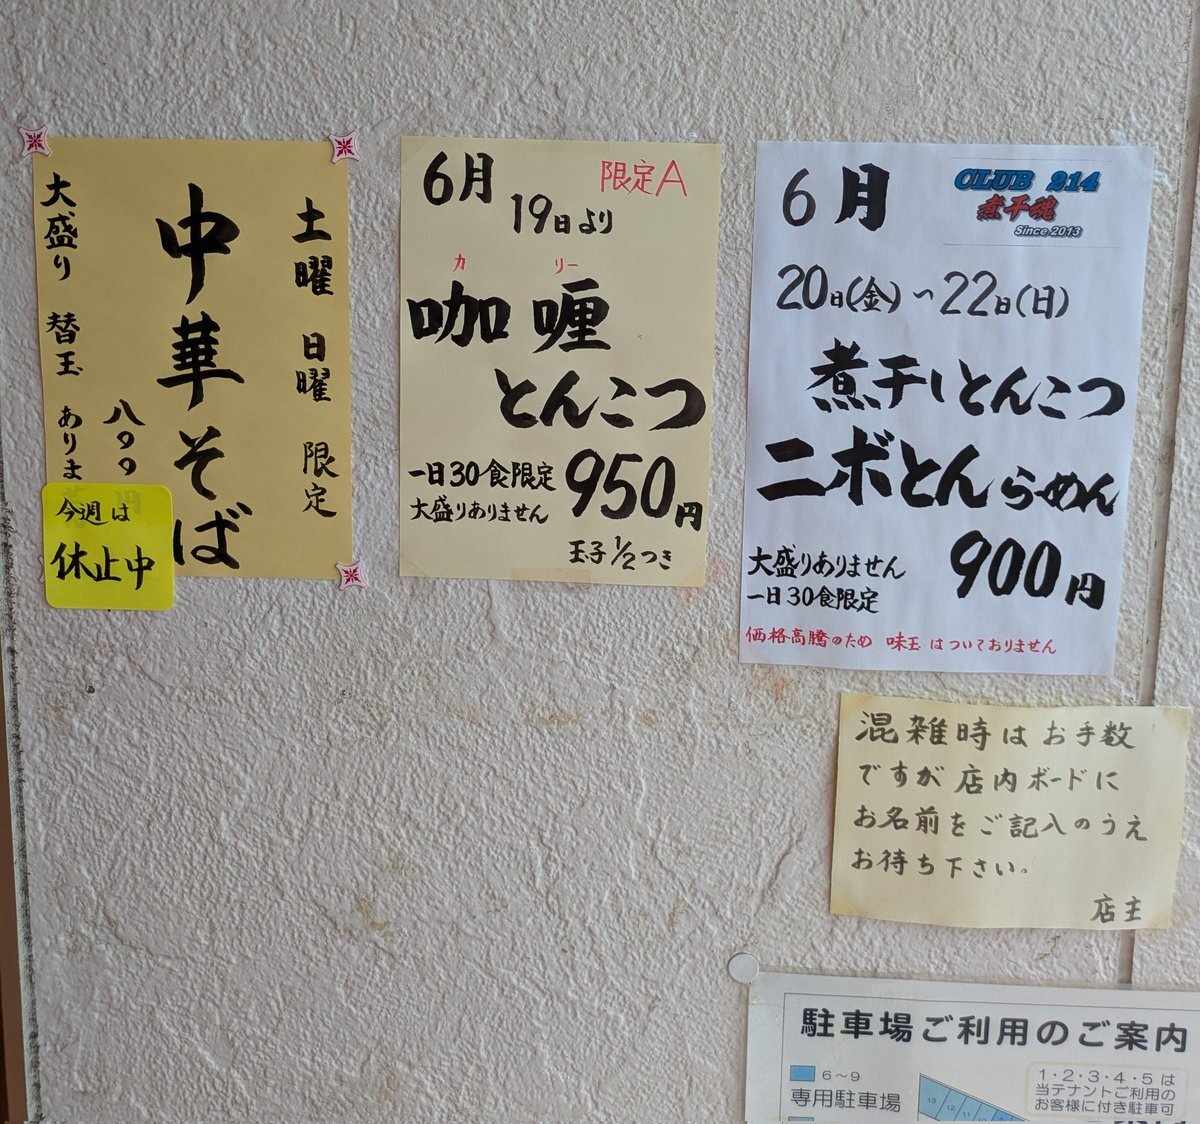 土曜 日曜 限定
中華そば
八〇〇
大盛り 替玉 ありま
今週は
休止中
6月
限定A
19日より
カリー
咖喱
とんこつ
一日30食限定
大盛りありません
950円
玉子1/2つき
6月
CLUB 214
煮干魂
Since 2013
20日(金)〜22日(日)
煮干しとんこつ
ニボとんらーめん
大盛りありません
一日30食限定
900円
価格高騰のため 味玉はついておりません
混雑時はお手数
ですが店内ボードに
お名前をご記入のうえ
お待ち下さい。
店主
駐車場ご利用のご案内
6〜9
専用駐車場
1・2・3・4・5は
当テナントご利用の
お客様に付き駐車可
13
12
11
10